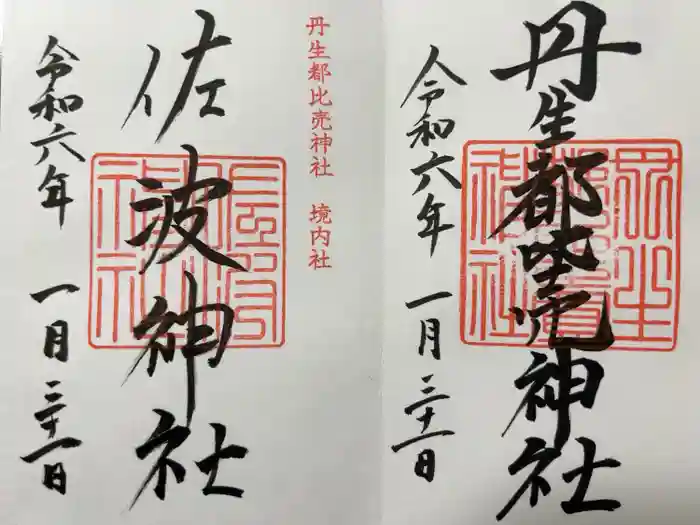 丹生都比売神社
令和六年 一月三十一日
丹生都比売神社 境内社
佐波神社
令和六年 一月三十一日